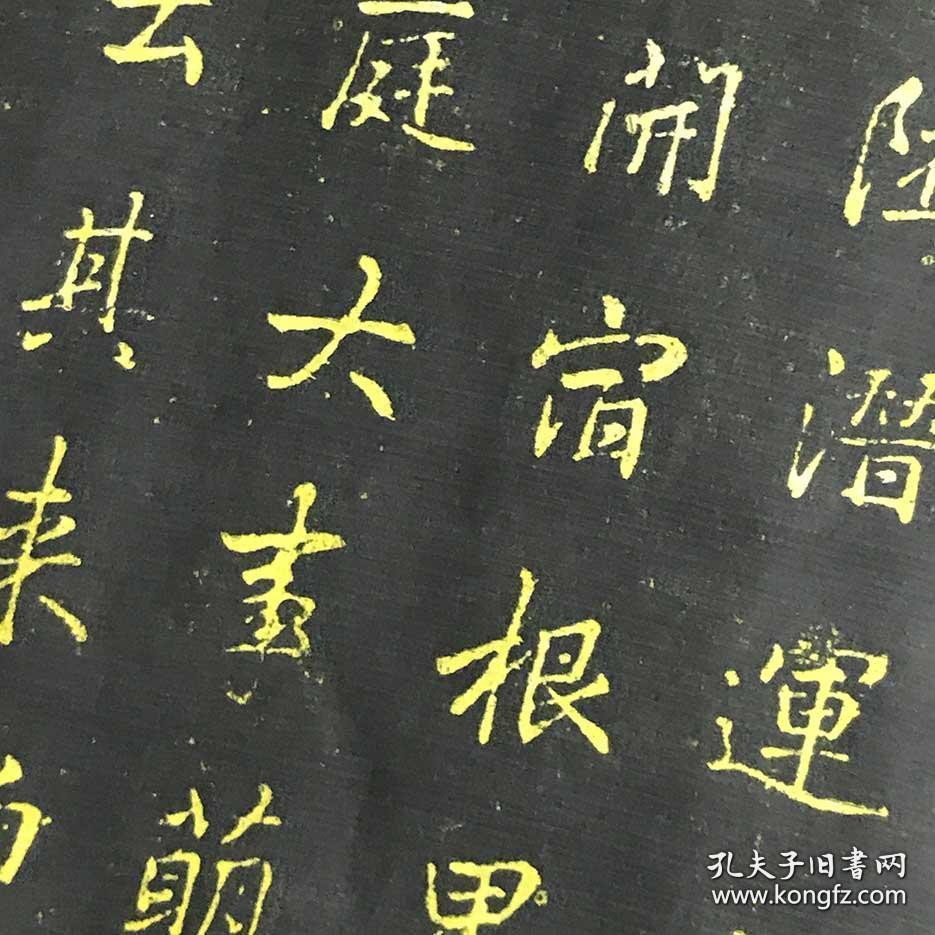 潛運
開宿根
庭大畫萌
其来
孔夫子旧書网
www.kongfz.com